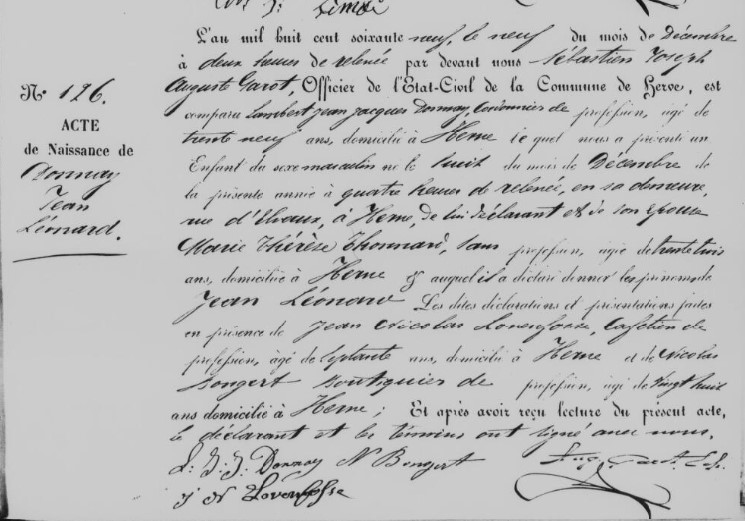 L'an mil huit cent soixante neuf, le neuf du mois de Décembre
à deux heures de relevée par devant nous Sébastien Joseph
Auguste Garot, Officier de l'Etat-Civil de la Commune de Herve, est
comparu Lambert Jean Jacques Donnay, Cordonnier de profession, agé de
trente neuf ans, domicilié à Herve le quel nous a présenté un
Enfant du sexe masculin né le huit du mois de Décembre de
la présente année à quatre heures de relevée, en sa demeure,
rue d'Elvaux, à Herve, de lui déclarant et de son épouse
Marie Thérèse Thonnard, sans profession, agée de trente trois
ans, domiciliée à Herve & auquel il a déclaré donner les prénoms de
Jean Léonard Les dites déclarations et présentations faites
en présence de Jean Nicolas, Cafetier de
profession, agé de septante ans, domicilié à Herve et de Nicolas
Bongert Boutiquier de profession, agé de vingt huit
ans domicilié à Herve ; Et après avoir reçu lecture du présent acte,
le déclarant et les témoins ont signé avec nous.
L. J. J. Donnay N Bongert
J N
N° 126.
ACTE
de Naissance de
Donnay
Jean
Léonard.